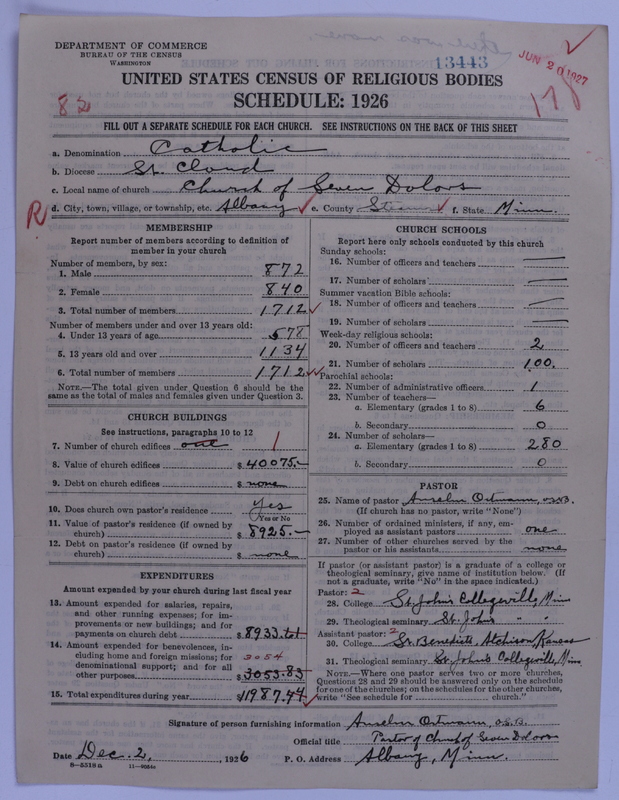 DEPARTMENT OF COMMERCE
BUREAU OF THE CENSUS
WASHINGTON
13443
JUN 20 1927
UNITED STATES CENSUS OF RELIGIOUS BODIES
SCHEDULE: 1926
82
178
FILL OUT A SEPARATE SCHEDULE FOR EACH CHURCH. SEE INSTRUCTIONS ON THE BACK OF THIS SHEET
a. Denomination Catholic
b. Diocese St. Cloud
c. Local name of church Church of Seven Dolors
R d. City, town, village, or township, etc. Albany e. County Stearns f. State Minn.
MEMBERSHIP
Report number of members according to definition of
member in your church
Number of members, by sex:
1. Male 872
2. Female 840
3. Total number of members 1712
Number of members under and over 13 years old:
4. Under 13 years of age 578
5. 13 years old and over 1134
6. Total number of members 1712
NOTE.—The total given under Question 6 should be the
same as the total of males and females given under Question 3.
CHURCH BUILDINGS
See instructions, paragraphs 10 to 12
7. Number of church edifices one 1
8. Value of church edifices $ 40075.—
9. Debt on church edifices $ none
10. Does church own pastor's residence Yes
(Yes or No)
11. Value of pastor's residence (if owned by
church) $ 8925.—
12. Debt on pastor's residence (if owned by
church) $ none
EXPENDITURES
Amount expended by your church during last fiscal year
13. Amount expended for salaries, repairs,
and other running expenses; for im-
provements or new buildings; and for
payments on church debt $ 8933.tol
14. Amount expended for benevolences, in-
cluding home and foreign missions; for 3054
denominational support; and for all
other purposes $ 3053.83
15. Total expenditures during year $ 11987.44
CHURCH SCHOOLS
Report here only schools conducted by this church
Sunday schools:
16. Number of officers and teachers —
17. Number of scholars —
Summer vacation Bible schools:
18. Number of officers and teachers —
19. Number of scholars —
Week-day religious schools:
20. Number of officers and teachers 2
21. Number of scholars 100.
Parochial schools:
22. Number of administrative officers 1
23. Number of teachers—
a. Elementary (grades 1 to 8) 6
b. Secondary 0
24. Number of scholars—
a. Elementary (grades 1 to 8) 280
b. Secondary 0
PASTOR
25. Name of pastor Anselm Ortmann, O.S.B.
(If church has no pastor, write "None")
26. Number of ordained ministers, if any, em-
ployed as assistant pastors one
27. Number of other churches served by the
pastor or his assistants none
If pastor (or assistant pastor) is a graduate of a college or
theological seminary, give name of institution below. (If
not a graduate, write "No" in the space indicated.)
Pastor: 2
28. College St. John's Collegeville, Minn
29. Theological seminary St. John's " "
Assistant pastor: 2
30. College St. Benedict's Atchison Kansas
31. Theological seminary St. John's Collegeville, Minn.
NOTE.—Where one pastor serves two or more churches,
Questions 28 and 29 should be answered only on the schedule
for one of the churches; on the schedules for the other churches,
write "See schedule for church."
Signature of person furnishing information Anselm Ortmann, O.S.B.
Official title Pastor of Church of Seven Dolors
Date Dec. 2, 1926 P. O. Address Albany, Minn.
8—5518a 11—9554a